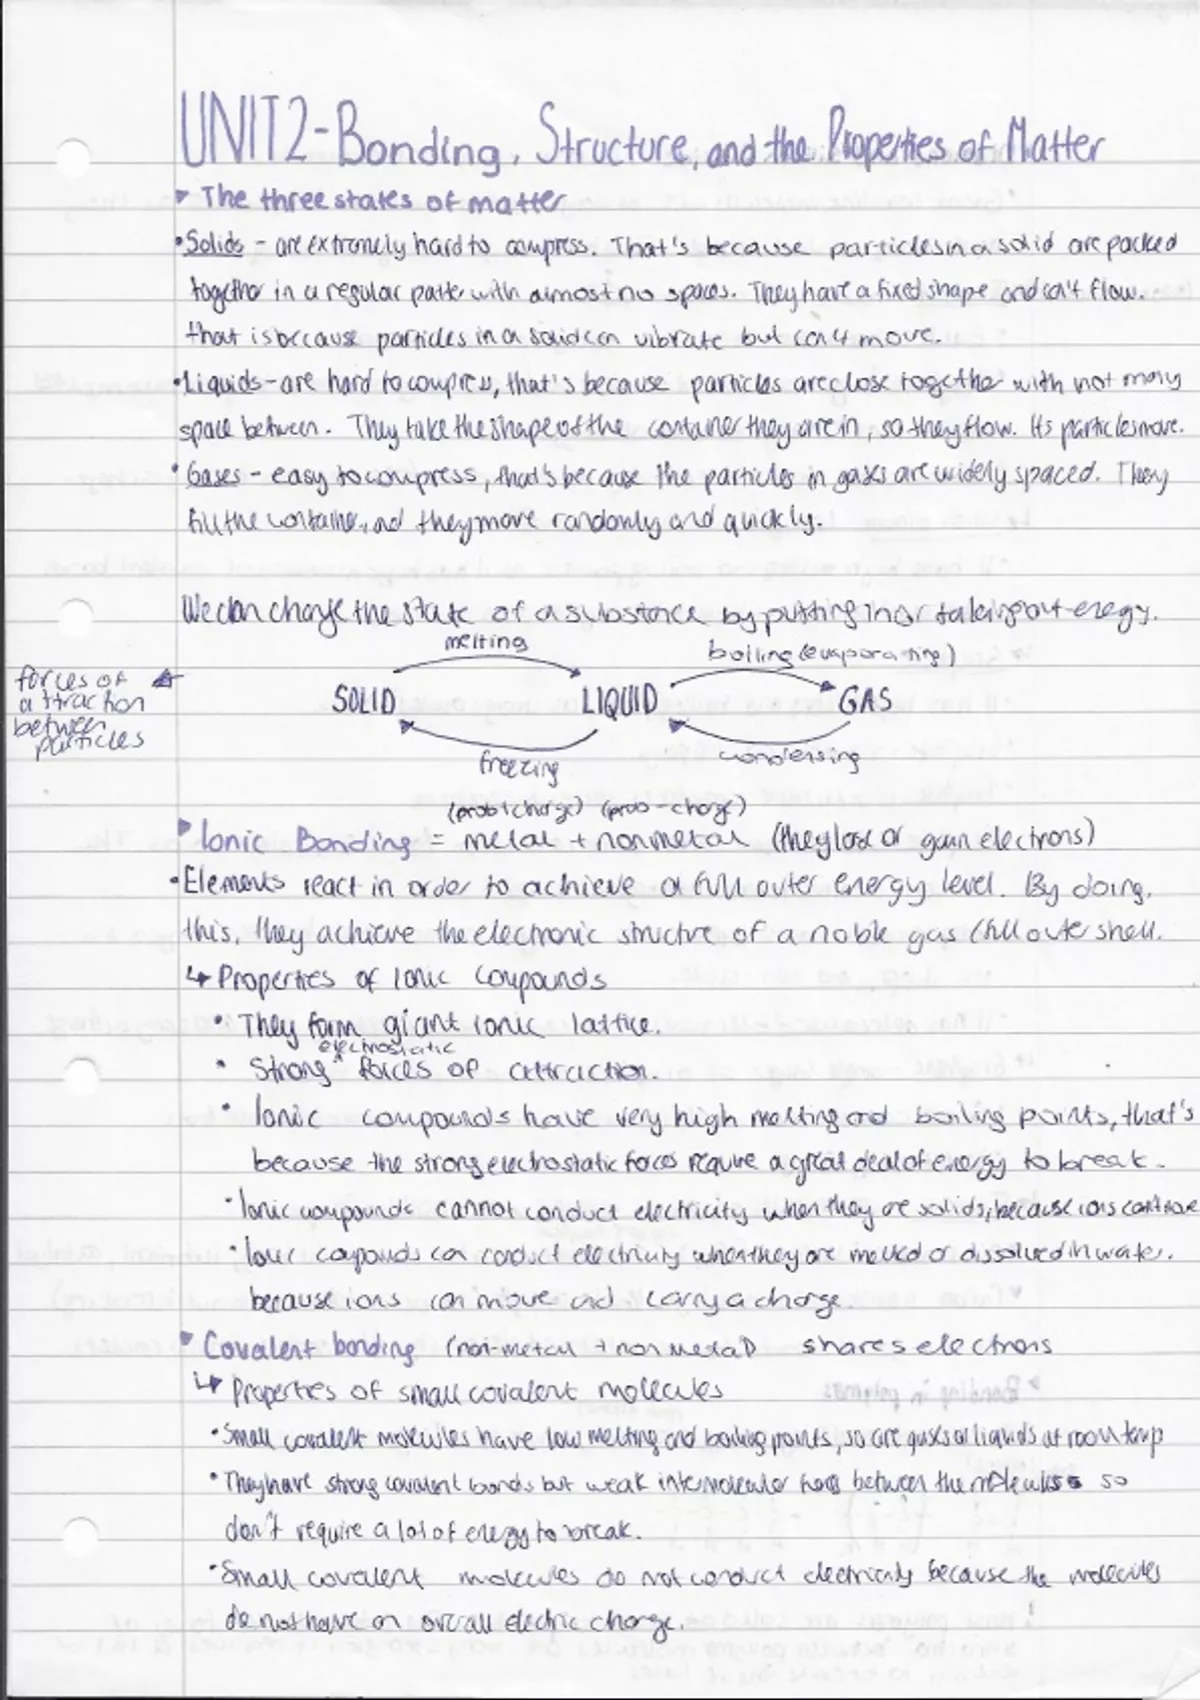 UNIT 2 - Bonding, Structure, and the Properties of Matter
▸ The three states of matter
• Solids - are extremely hard to compress. That's because particles in a solid are packed
together in a regular patter with almost no spaces. They have a fixed shape and can't flow.
that is because particles in a solid can vibrate but can't move.
• Liquids - are hard to compress, that's because particles are close together with not many
space between. They take the shape of the container they are in, so they flow. Its particles move.
• Gases - easy to compress, that's because the particles in gases are widely spaced. They
fill the container, and they move randomly and quickly.
We can change the state of a substance by putting in or taking out energy.
melting
boiling (evaporating)
forces of
attraction
between
particles
SOLID LIQUID GAS
freezing
condensing
(prob + charge) (prob - charge)
▸ Ionic Bonding = metal + nonmetal (they lose or gain electrons)
• Elements react in order to achieve a full outer energy level. By doing,
this, they achieve the electronic structure of a noble gas (full outer shell.
↳ Properties of Ionic Compounds
• They form giant ionic lattice.
electrostatic
• Strong ^ forces of attraction.
• Ionic compounds have very high melting and boiling points, that's
because the strong electrostatic forces require a great deal of energy to break.
• Ionic compounds cannot conduct electricity when they are solids, because ions can't move
• Ionic compounds can conduct electricity when they are melted or dissolved in water.
because ions can move and carry a charge.
▸ Covalent bonding (non-metal + non metal) shares electrons
↳ Properties of small covalent molecules
• Small covalent molecules have low melting and boiling points, so are gases or liquids at room temp
• They have strong covalent bonds but weak intermolecular forces between the molecules so
don't require a lot of energy to break.
• Small covalent molecules do not conduct electricity because the molecules
do not have an overall electric charge.